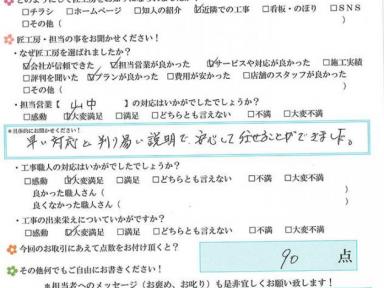 □チラシ □ホームページ □知人の紹介 ☑近隣での工事 □看板・のぼり □SNS
□その他（ ）
匠工房・担当の事をお聞かせください！
・なぜ匠工房を選ばれましたか？
☑会社が信頼できた ☑担当営業が良かった ☑サービスや対応が良かった □施工実績
□評判を聞いた ☑プランが良かった □費用が安かった □店舗のスタッフが良かった
□その他（ ）
・担当営業【 山中 】の対応はいかがでしたでしょうか？
□感動 ☑大変満足 □満足 □どちらとも言えない □不満 □大変不満
※具体的にお聞かせください！
早い対応と判り易い説明で、安心して任せることができました。
・工事職人の対応はいかがでしたでしょうか？
□感動 ☑大変満足 □満足 □どちらとも言えない □不満 □大変不満
良かった職人さん（ ）
良くなかった職人さん（ ）
・工事の出来栄えについていかがですか？
□感動 ☑大変満足 □満足 □どちらとも言えない □不満 □大変不満
今回のお取引にあえて点数をお付け頂くと？ 90 点
その他何でもご自由にお書きください！
※担当者へのメッセージ（お褒め、お叱り）も是非宜しくお願い致します！